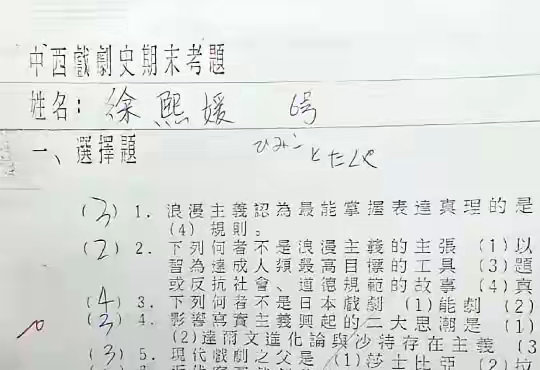 中西戲劇史期末考題
姓名: 徐熙媛 6号
ひみこ と たくや
一、選擇題
(3) 1. 浪漫主義認為最能掌握表達真理的是
(4) 規則。
(2) 2. 下列何者不是浪漫主義的主張 (1)以
習為達成人類最高目標的工具 (3)題
或反抗社會、道德規範的故事 (4)真
(4) 3. 下列何者不是日本戲劇 (1)能劇 (2)
(3) 4. 影響寫實主義興起的二大思潮是 (1)
(2)達爾文進化論與沙特存在主義 (3
(3) 5. 現代戲劇之父是 (1)莎士比亞 (2)拉